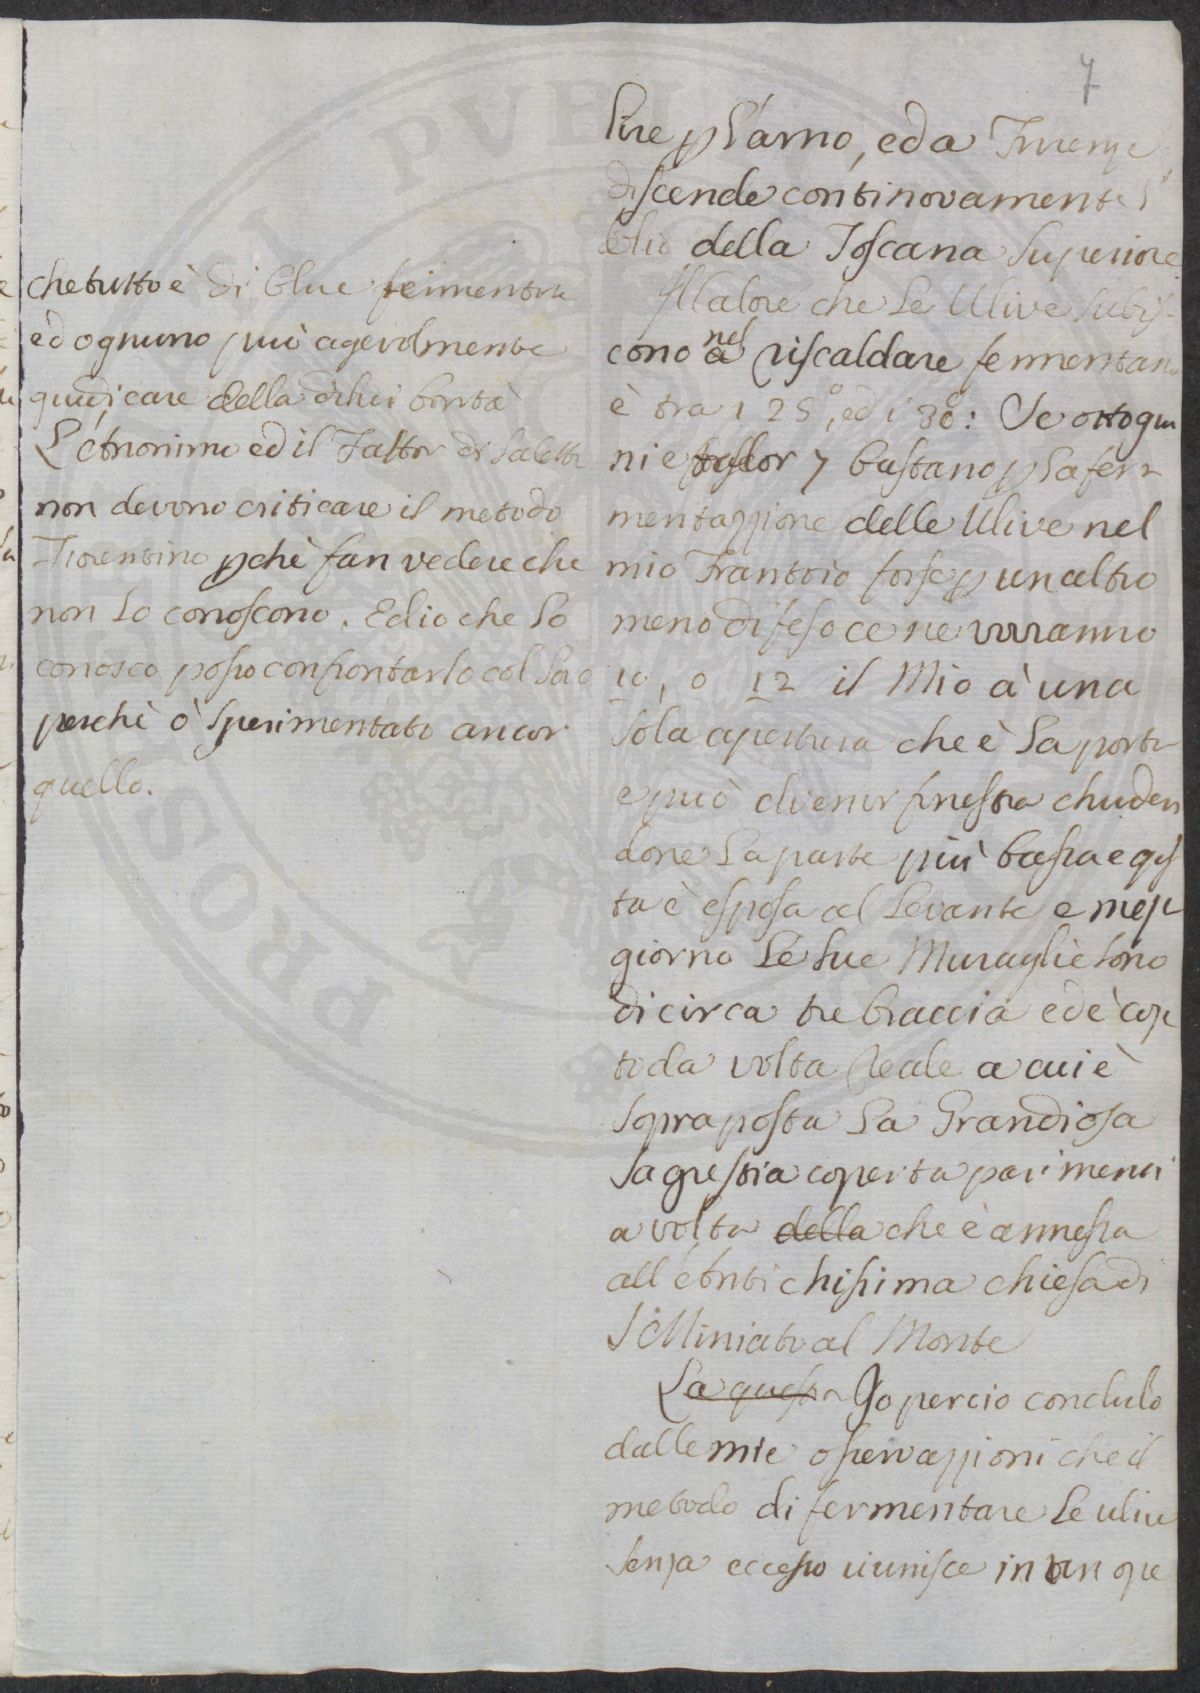 7
che tutto è di Ulive fermentate
ed ognuno può agevolmente
giudicare della di lui bontà
L'Anonimo ed il Fattor di Saletta
non devono criticare il metodo
Fiorentino pchè fan vedere che
non lo conoscono. Ed io che lo
conosco posso confrontarlo col loro
perchè ò sperimentato ancor
quello.
live p l'arno, ed a Firenze
discende continovamente l'
olio della Toscana superiore
Il calore che le Ulive subis-
cono nel riscaldare fermentan
è tra i 25°, ed i 30°: Se otto gior
ni e talor 7 bastano p la fer
mentazzione delle Ulive nel
mio Frantoio forse p un altro
meno difeso ce ne vorranno
10, o 12 il Mio à una
sola apertura che è la porta
e può divenir finestra chiuden
done la parte più bassa e qs
ta è esposa al Levante e mez
giorno Le sue Muraglie sono
di circa tre braccia ed è coper
to da volta Reale a cui è
sopra posta la Grandiosa
sagrestia coperta parimenti
a volta della che è annessa
all Antichissima chiesa di
S. Miniato al Monte
La questa Io percio concludo
dalle mie osservazzioni che il
metodo di fermentare le ulive
senza eccesso riunisce in un ope